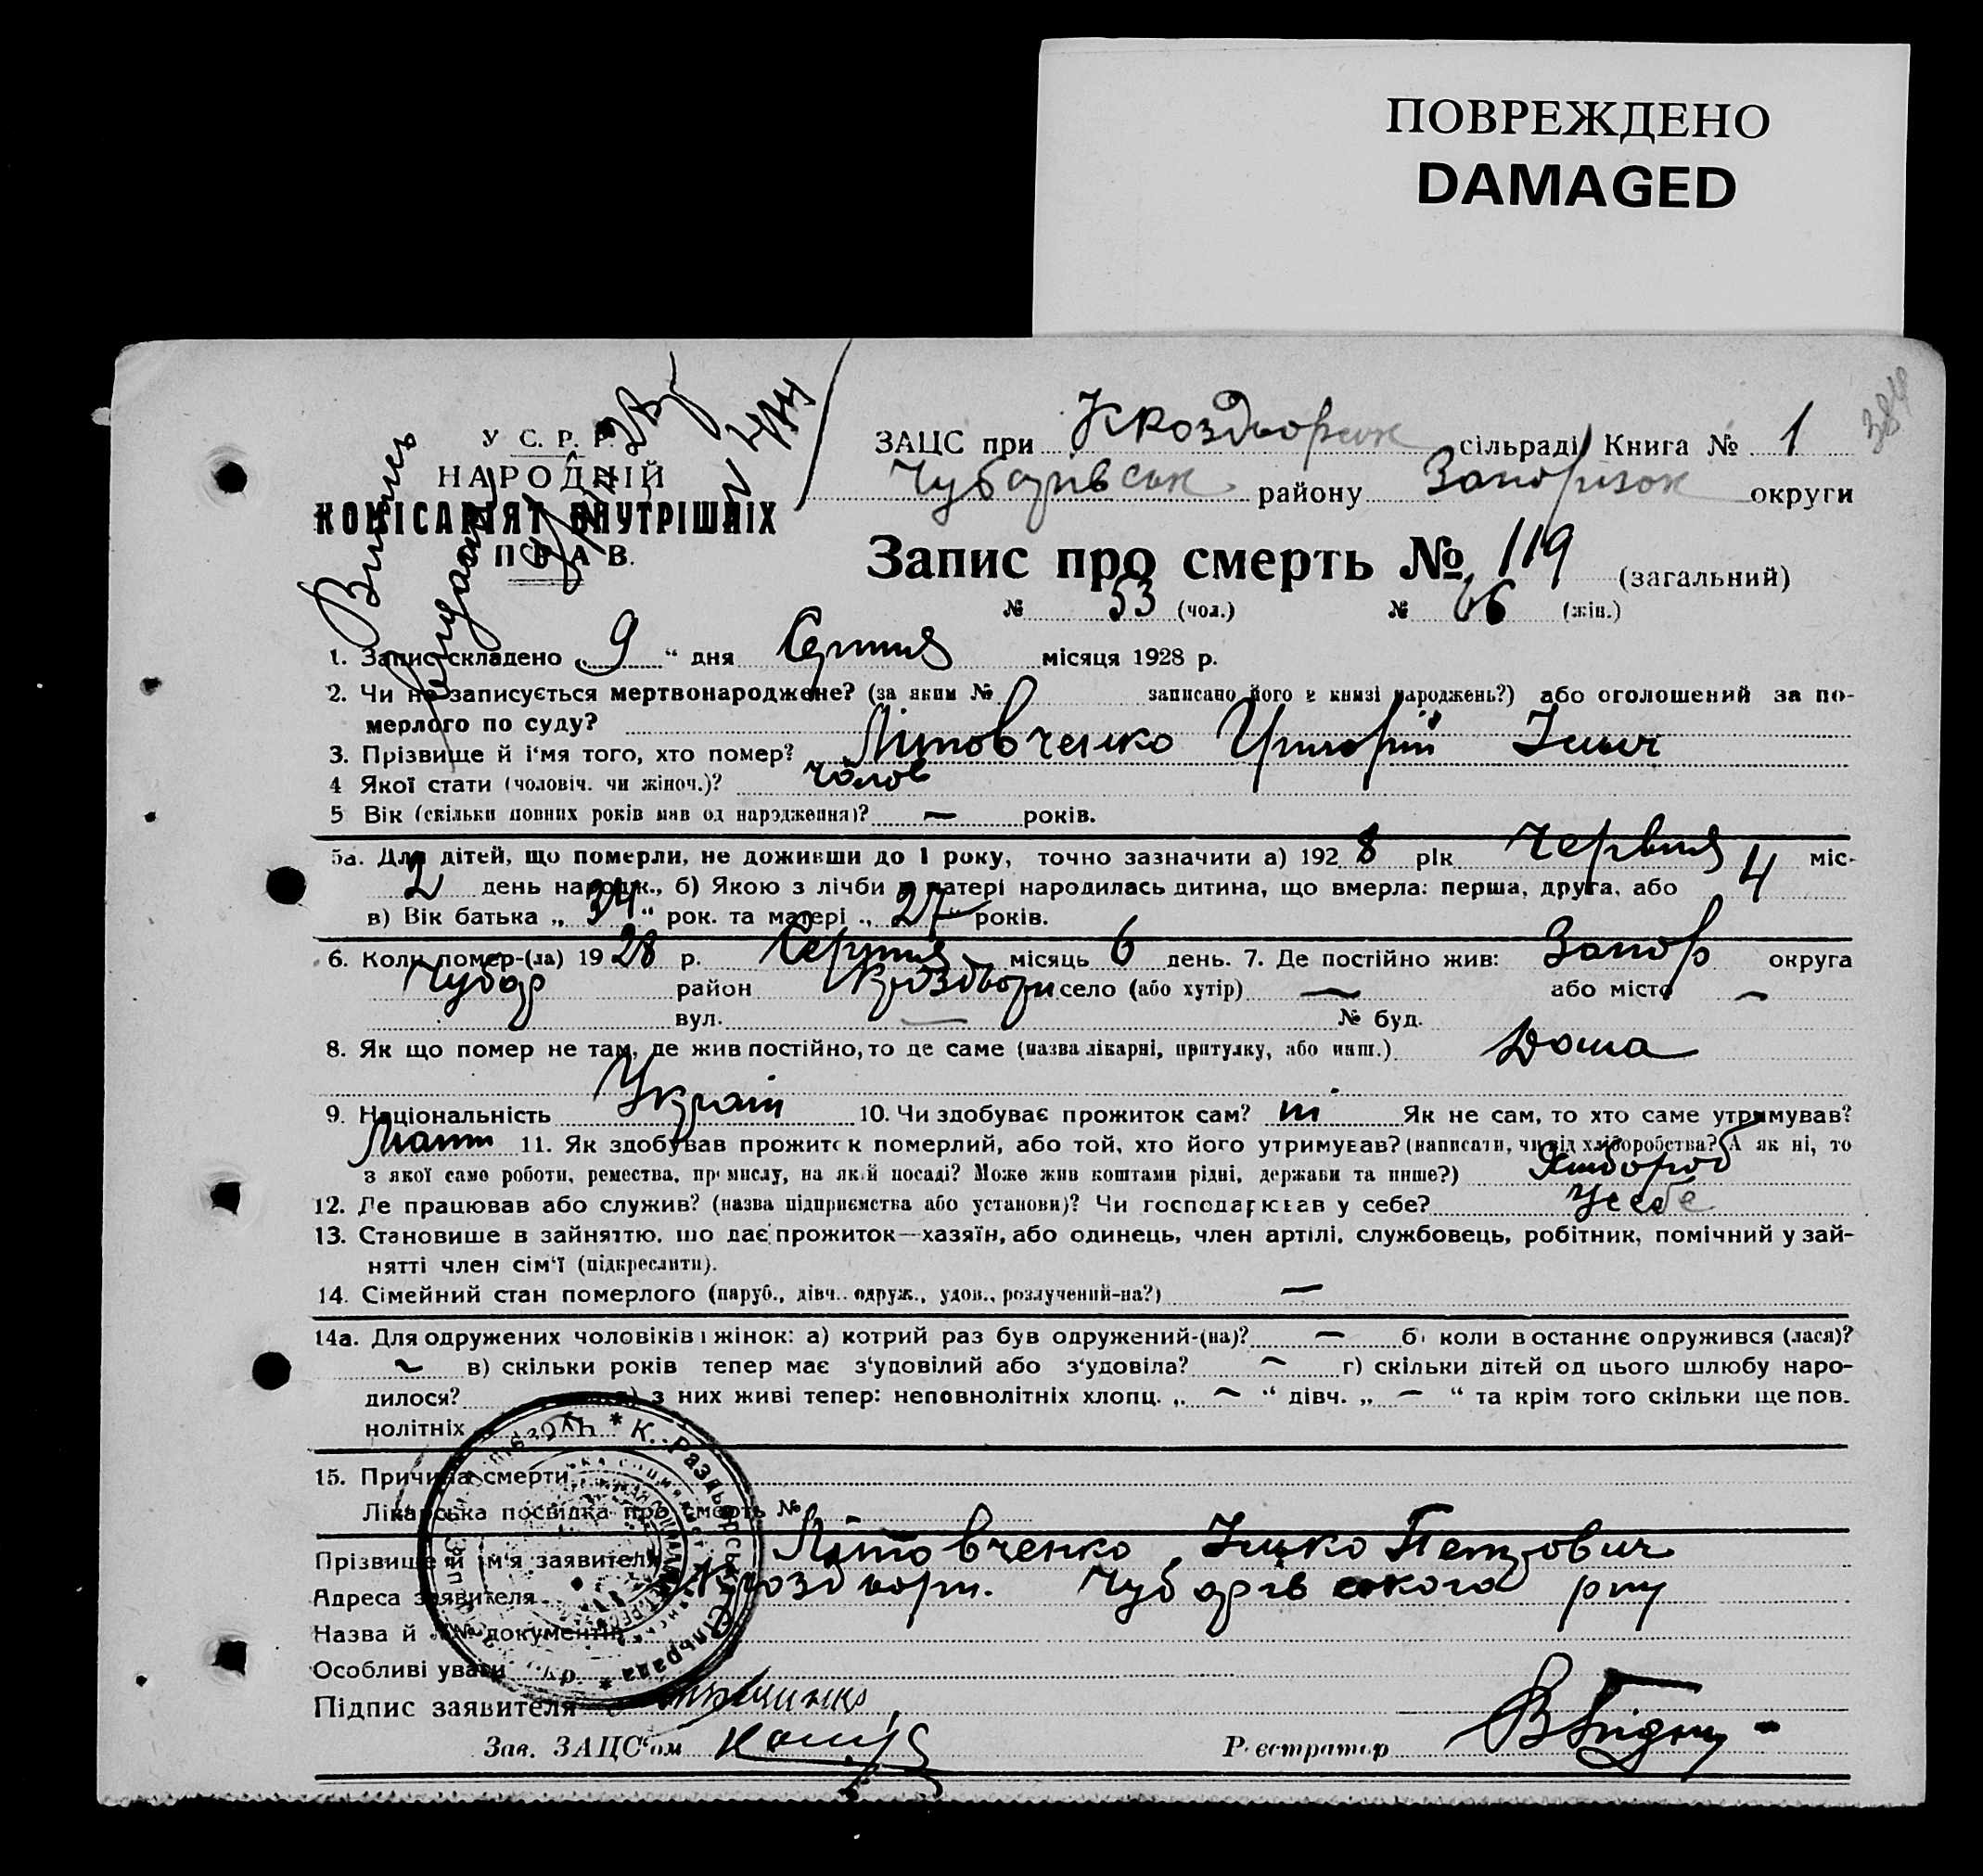 ПОВРЕЖДЕНО
DAMAGED
384
У С. Р. Р.
НАРОДНІЙ
КОМІСАРІЯТ ВНУТРІШНІХ
ПРАВ.
ЗАЦС при Кроздорськ сільраді Книга № 1
Чубарівськ району Запорізьк округи
Запис про смерть № 119 (загальний)
№ 53 (чол.) № 66 (жін.)
1. Запис складено „ 9 “ дня Серпня місяця 1928 р.
2. Чи не записується мертвонароджене? (за яким № записано його в книзі народжень?) або оголошений за по-
мерлого по суду?
3. Прізвище й і‘мя того, хто помер? Літовченко Григорій Ільич
4 Якої стати (чоловіч. чи жіноч.)? чолов
5 Вік (скільки повних років мав од народження)? — років.
5а. Для дітей, що померли, не доживши до 1 року, точно зазначити а) 192 8 рік Червня міс-
2 день народж., б) Якою з лічби в матері народилась дитина, що вмерла: перша, друга, або 4
в) Вік батька „ 34 “ рок. та матері „ 27 “ років.
6. Коли помер-(ла) 19 28 р. Серпня місяць 6 день. 7. Де постійно жив: Запор округа
Чубар район Кроздори село (або хутір) — або місто —
вул. — № буд.
8. Як що помер не там, де жив постійно, то де саме (назва лікарні, притулку, або инш.) Дома
9. Національність Украін 10. Чи здобуває прожиток сам? ні Як не сам, то хто саме утримував?
Мати 11. Як здобував прожиток померлий, або той, хто його утримував? (написати, чи від хліборобства? А як ні, то
з якої саме роботи, ремества, промислу, на якій посаді? Може жив коштами рідні, держави та инше?) Хлібороб
12. Де працював або служив? (назва підприємства або установи)? Чи господарював у себе? У себе
13. Становище в зайняттю, що дає прожиток—хазяїн, або одинець, член артілі, службовець, робітник, помічний у зай-
нятті член сім‘ї (підкреслити).
14. Сімейний стан померлого (паруб., дівч., одруж., удов., розлучений-на?) —
14а. Для одружених чоловіків і жінок: а) котрий раз був одружений-(на)? — б) коли в останнє одружився (лася)?
~ в) скільки років тепер має з‘удовілий або з‘удовіла? ~ г) скільки дітей од цього шлюбу наро-
дилося? з них живі тепер: неповнолітніх хлопц. „ ~ “ дівч. „ — “ та крім того скільки ще пов.
нолітніх
15. Причина смерти
Лікарська посвідка про смерть №
Прізвище й ім‘я заявителя Літовченко Ілько Петрович
Адреса заявителя Кроздори. Чубарівського рну
Назва й №№ документів
Особливі уваги
Підпис заявителя
Зав. ЗАЦС‘ом
Реєстратор
* К. Раздорська Сільрада *